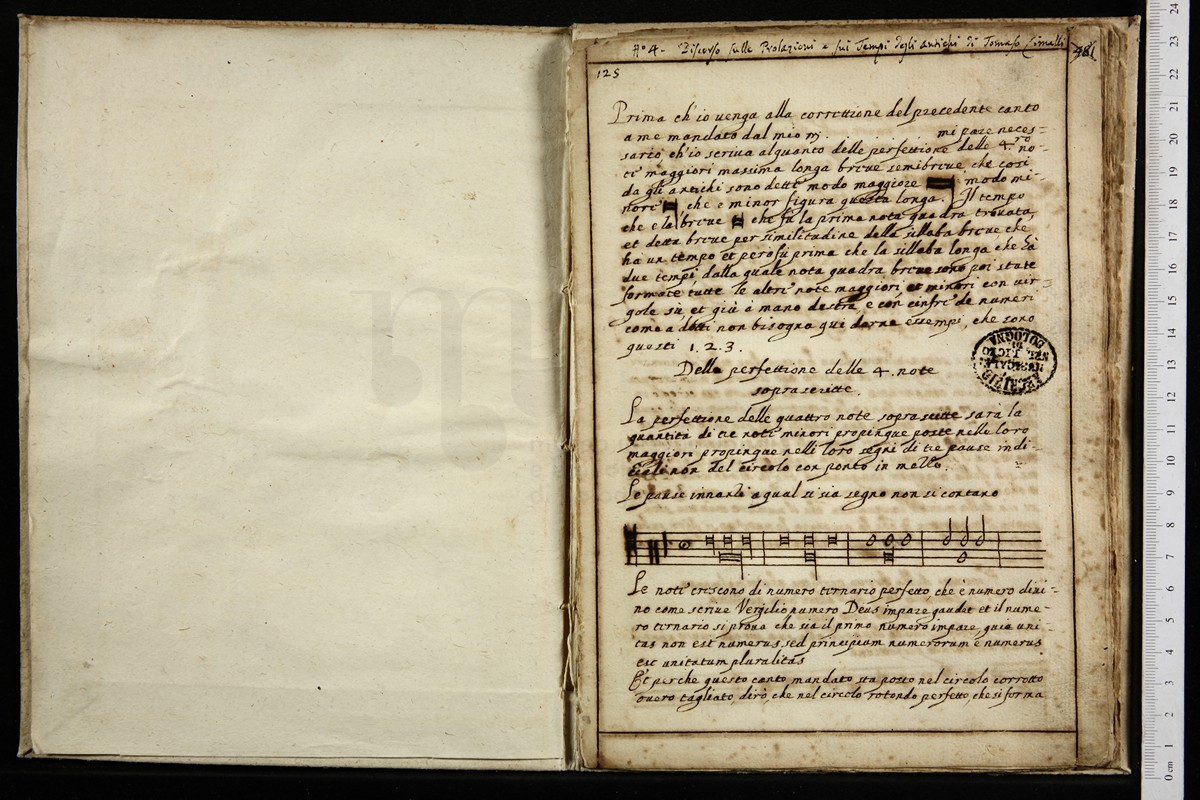 N.o 4. Discorso sulle Prolazioni e sui Tempi degli antichi di Tomaso Cimelli
125
Prima ch'io uenga alla correttione del precedente canto
a me mandato dal mio mi pare neces=
sario ch'io scriua alquanto delle perfettione delle 4.ro no=
te maggiori massima longa breue semibreue che cosi
da gli antichi sono dette modo maggiore modo mi=
nore che e minor figura questa longa. Il tempo
che e la breue che fu la prima nota quadra trouata,
et detta breue per similitudine della sillaba breue che
ha un tempo et però fu prima che la sillaba longa che hà
due tempi dalla quale nota quadra breue sono poi state
formate tutte le altre note maggiori et minori con uir=
gole sù, et giù à mano destra e con cinfre de numeri
come a dotti non bisogna qui darne essempi, che sono
questi 1. 2. 3.
Della perfettione delle 4. note
soprascritte.
La perfettione delle quattro note soprascritte sarà la
quantità di tre note minori propinque poste nelle loro
maggiori propinque nelli loro segni di tre pause
del circolo con ponto in mezzo.
Le pause innanzi a qual si sia segno non si contano
Le note crescono di numero ternario perfetto, che è numero diui=
no come scriue Vergilio numero Deus impare gaudet et il nume=
ro ternario si proua che sia il primo numero impare, quia uni=
tas non est numerus sed principium numerorum e numerus
est unitatum pluralitas
Et perche questo canto mandato sta posto nel circolo corrotto
ouero tagliato, dirò, che nel circolo rotondo perfetto, che si forma
ARCHIVIO
MUSICALE
NEL LICEO
DI
BOLOGNA
24
23
22
21
20
19
18
17
16
15
14
13
12
11
10
9
8
7
6
5
4
3
2
1
0 cm